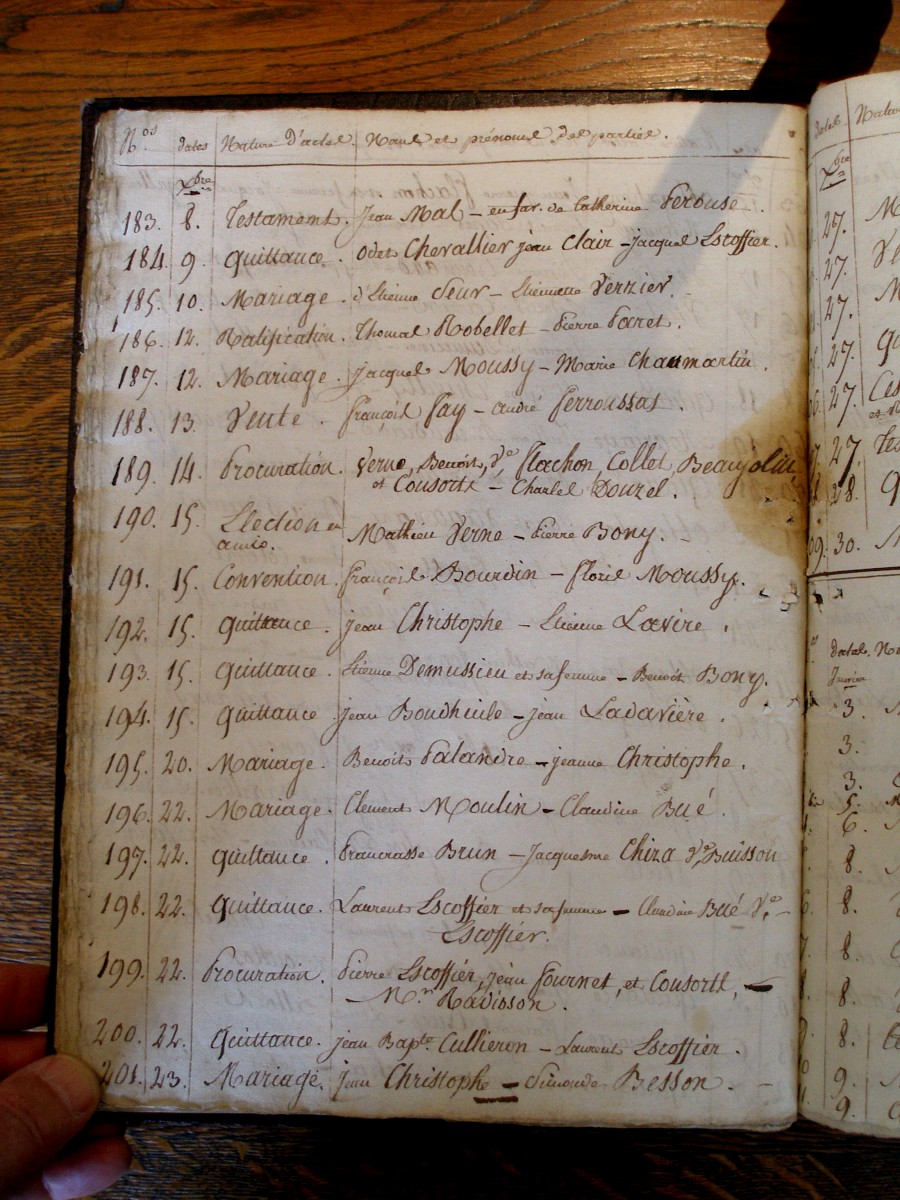 N.os dates Nature d'actes. Noms et prénoms des parties.
Xbre
183. 8. Testament. Jean Mal – en fav. de Catherine Perouse.
184. 9. Quittance. Odet Chevallier jean Clair – jacques Escoffier.
185. 10. Mariage. d'Etienne Seux – Etiennette Verzier.
186. 12. Ratification. Thomas Robellet – Pierre Paret.
187. 12. Mariage. jacques Moussy – Marie Chaumartin.
188. 13. Vente. françois Fay – andré Ferroussat.
189. 14. Procuration. Verne, Benoit, Ve Flachon, Collet, Beaujolin
et Consorts – Charles Douzel.
190. 15. Election en
amis. Mathieu Verne – Pierre Bony.
191. 15. Convention. françois Bourdin – floris Moussy.
192. 15. quittance. jean Christophe – Etienne Lavire.
193. 15. quittance. Etienne Demussieu et sa femme – Benoit Bony.
194. 15. quittance. jean – jean Ladavière.
195. 20. Mariage. Benoit Palandre – jeanne Christophe.
196. 22. Mariage. Clement Moulin – Claudine Bué.
197. 22. quittance. Brun – Chiza Ve Buisson
198. 22. Quittance. Laurent Escoffier et sa femme – Claudine Bué Ve. –
Escoffier.
199. 22. Procuration. Pierre Escoffier, jean Fournet, et Consorts, –
Mr. Ravisson.
200. 22. Quittance. jean Bapte. Cullieron – Laurent Escoffier.
201. 23. Mariage. jean Christophe – Simonde Besson. –
dates Natu
Xbre
27. M
27. Ve
27. M
27. qu
27. Ces
et
27. Tes
28. Q
09. 30.
dates. No
Janvier
3.
3.
3.
5.
6.
8.
8.
8.
8.
8.
9.
9.